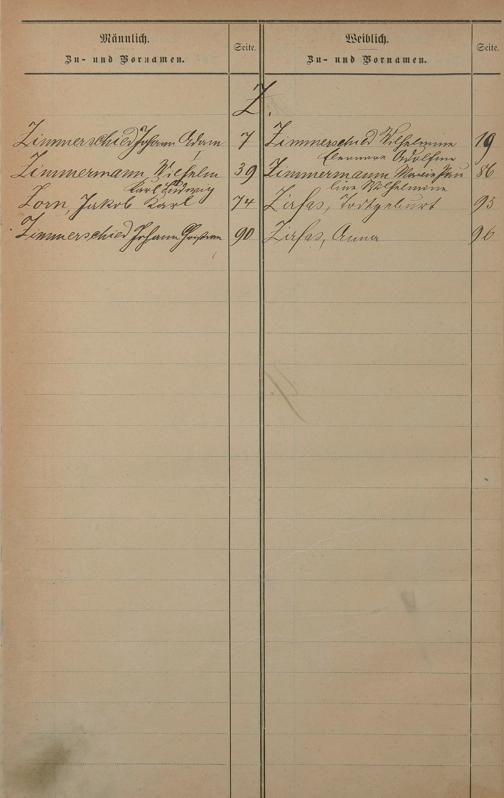 Männlich.
Zu- und Vornamen.
Seite.
Weiblich.
Zu- und Vornamen.
Seite.
Z.
Zimmerschied Johann Adam 7
Zimmermann, Wilhelm 39
Karl Ludwig
Zorn, Jakob Karl 74
Zimmerschied Johann 90
Zimmerschied Wilhelmine 19
Eleonore Adolfine
Zimmermann Marie Pau 86
line Wilhelmine
Zirfas, Todtgeburt 93
Zirfas, Anna 96